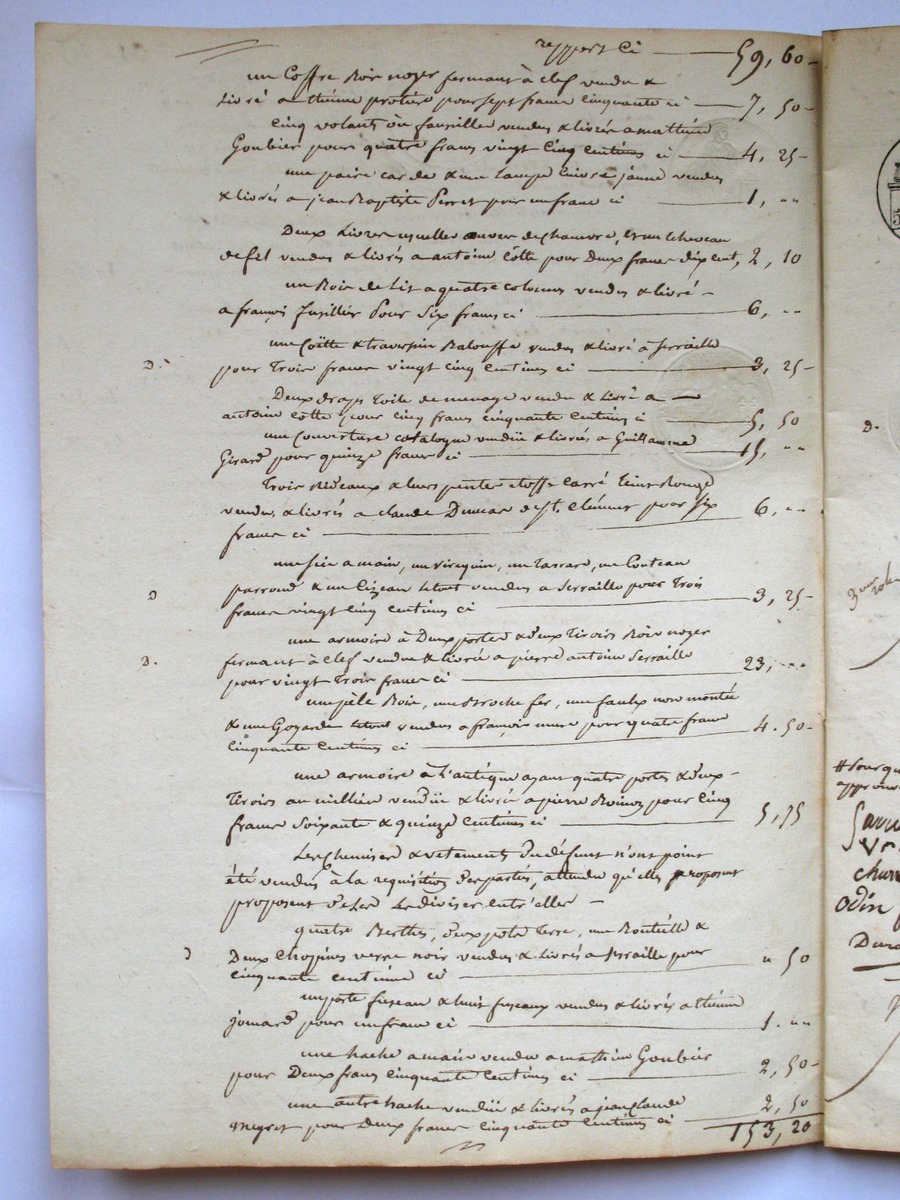 report ci 59, 60
un Coffre Bois noyer fermant à clef vendu &
Livré a ttienne protiere pour sept francs cinquante ci 7, 50
cinq volants ou fausilles vendus & livrés a mathieu
Goubier pour quatre francs vingt cinq centimes ci 4, 25
une paire carde & une Lampe cuivre jaune vendus
& livrés a jean Baptiste Perret pour un franc ci 1, ""
Deux Livres œuvre de chanvre, & un Echeveau
de fil vendus & livrés a antoine Côtte pour Deux francs dix cent, 2, 10
un Bois de Lit a quatre colonnes vendus & livré
a françois fusillier pour six francs ci 6, ""
une Coëtte & traversin Balouffe vendus & livré à Serraille
D. pour Trois francs vingt cinq centimes ci 3, 25
Deux draps Toile de menage vendu & Livré a
antoine Côtte pour cinq francs cinquante centimes ci 5, 50
une Couverture catalogne vendüe & livrée a Guillaume
Girard pour quinze francs ci 15, ""
Trois Rideaux & leurs pentes étoffe Carré teint Rouge
vendus & livrés a claude de St. Clément pour six
francs ci 6, ""
une scie a main, un virequin, un Tarrare, un Couteau
parroud & un Cizeau letout vendus a Serraille pour Trois
D francs vingt cinq centimes ci 3, 25
une armoire à Deux portes & deux Tiroirs Bois noyer
D. fermant à clef vendue & livrée a pierre antoine Serraille
pour vingt Trois francs ci 23, ""
une pèle Bois, une Broche fer, une faulx non montée
& une Goyarde letout vendus a françois mure pour quatre francs
cinquante centimes ci 4. 50
une armoire à L'antique ayant quatre portes & deux
Tiroirs au millieu vendüe & livrée a pierre pour cinq
francs soixante & quinze centimes ci 5, 75
Les chemises & vetements du défunt n'ont point
été vendus à la requisition des parties, attendu qu'elles proposent
proposent de les Le diviser entr'elles
quatre Berthes, deux pots Terre, une Bouteille &
D Deux Chopines verre noir vendus & Livrés a Serraille pour
cinquante centimes ci " 50
un porte fuseau & huit fuseaux vendus & livrés a ttienne
jomard pour un franc ci 1. ""
une hache a main vendue a mathieu Goubier
pour Deux francs cinquante centimes ci 2, 50
une autre hache vendüe & livrés a jean Claude
Megret pour Deux francs cinquante centimes ci 2, 50
153, 20
D.
3 rolle
# Pour qu
approuv
chur
odin